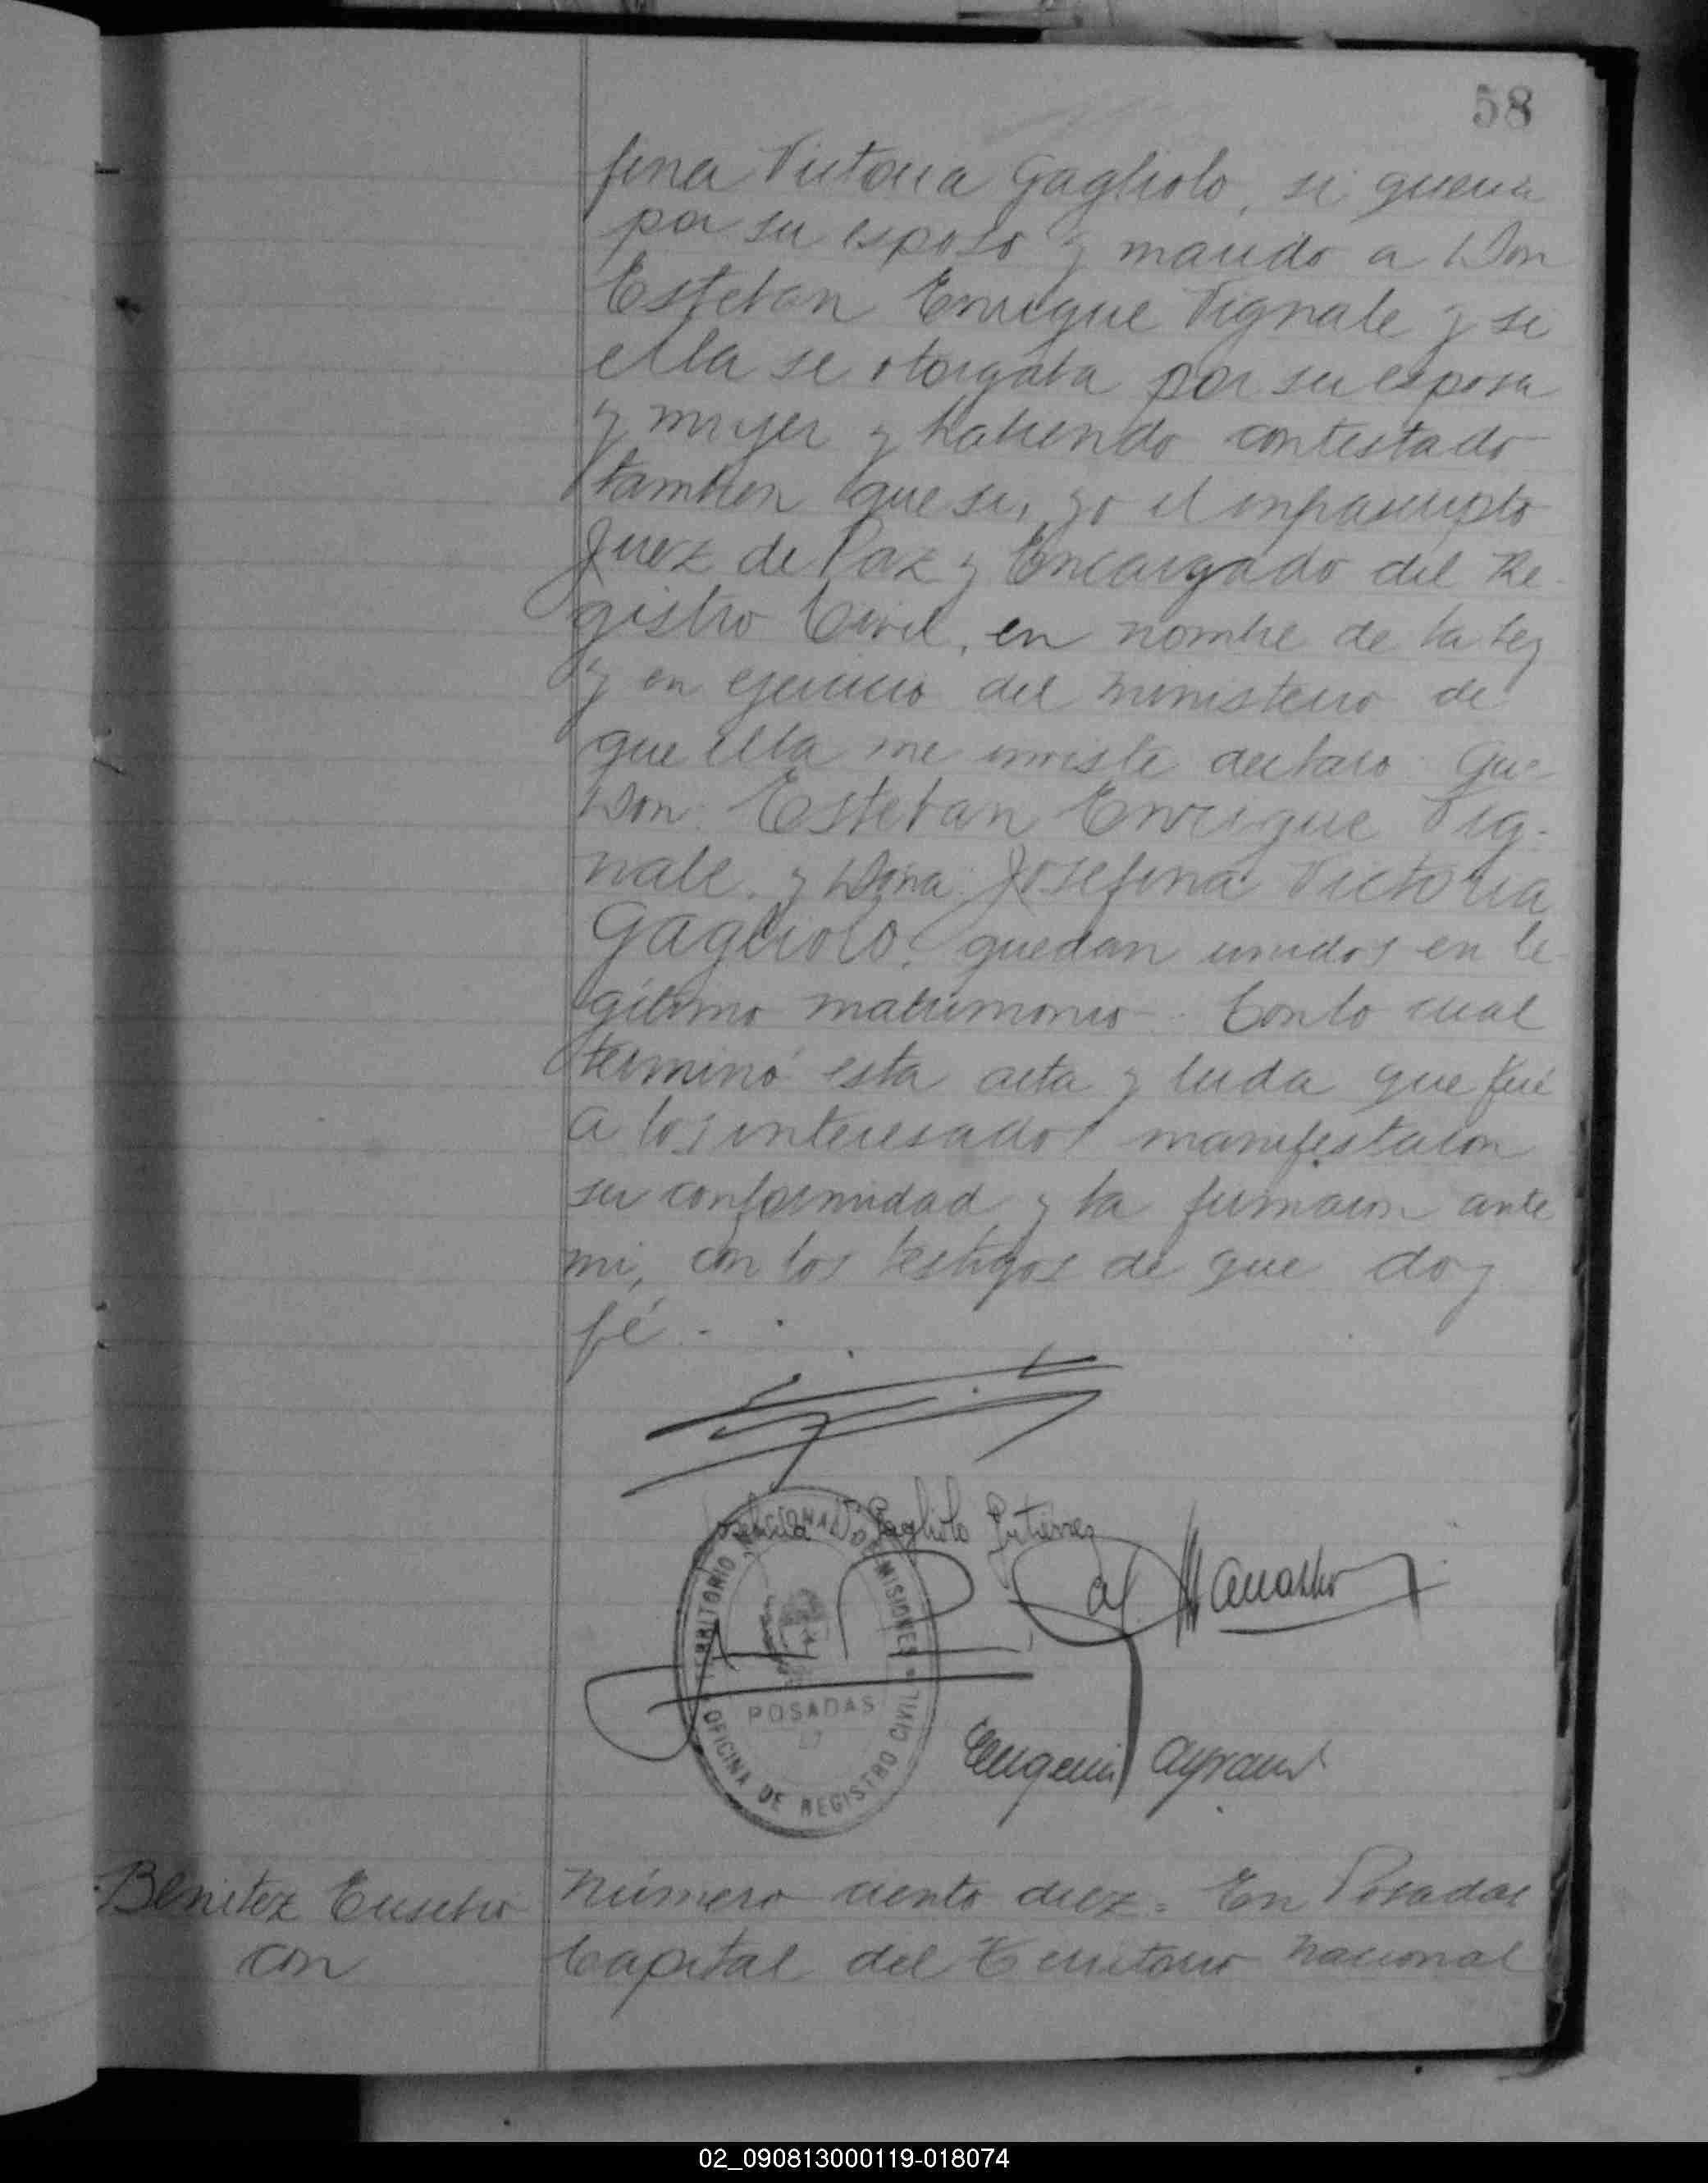 58
fina Victoria Gagliolo, si queria
por su esposo y marido a Don
Esteban Enrique Vignale y si
ella se otorgaba por su esposa
y mujer y habiendo contestado
tambien que si, yo el infrascripto
Juez de Paz y Encargado del Re-
gistro Civil, en nombre de la ley
y en ejercicio del ministerio de
que ella me inviste declaro que
Don: Esteban Enrique Vig-
nale y Doña: Josefina Victoria
Gagliolo, quedan unidos en le-
gitimo matrimonio. Con lo cual
terminó esta acta y leida que fué
a los interesados manifestaron
su conformidad y la firmaron ante
mi, con los testigos de que doy
fé.-
Josefina V. Gagliolo Gutierrez
TERRITORIO NACIONAL DE MISIONES
POSADAS
OFICINA DE REGISTRO CIVIL
Eugenio
Benitez Eusebio
con
Número ciento diez. En Posadas
Capital del Territorio Nacional
02_090813000119-018074